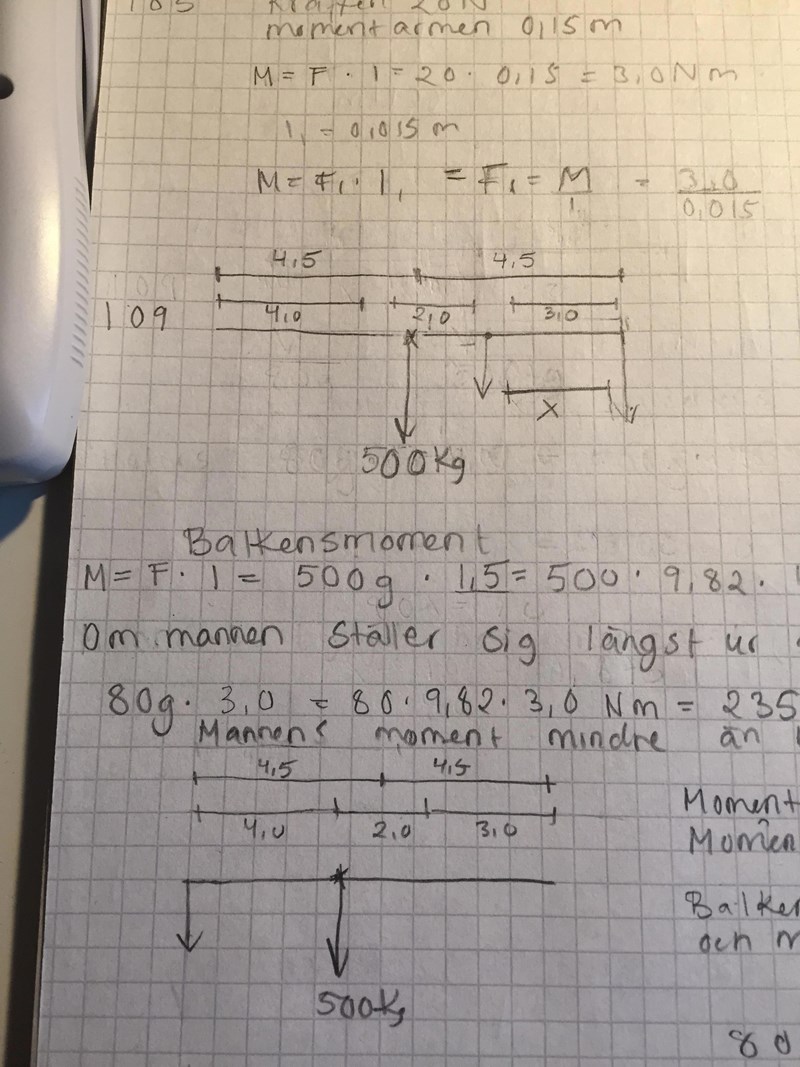 105 Kraften 20N
momentarmen 0,15 m
M = F · l = 20 · 0,15 = 3,0 Nm
l₁ = 0,015 m
M = F₁ · l₁ = F₁ = M/l = 3,0/0,015
4,5 4,5
109 4,0 2,0 3,0
X
500 Kg
Balkensmoment
M = F · l = 500g · 1,5 = 500 · 9,82 ·
Om mannen ställer sig längst ur
80g · 3,0 = 80 · 9,82 · 3,0 Nm = 235
Mannens moment mindre än
4,5 4,5
4,0 2,0 3,0
Moment
Momen
Balken
och m
500Kg
80